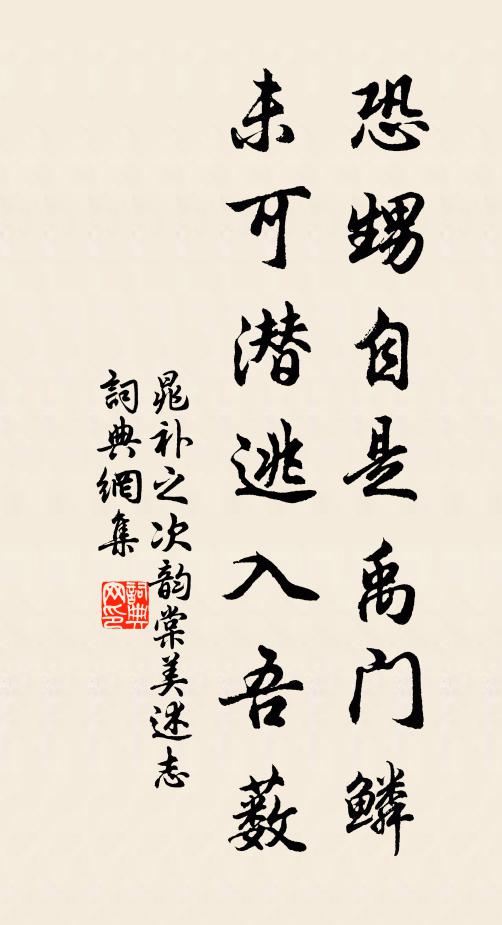 恐甥自是禹门鳞
未可潜逃入吾薮
晁补之次韵棠美述志
詞典網集
詞典網印